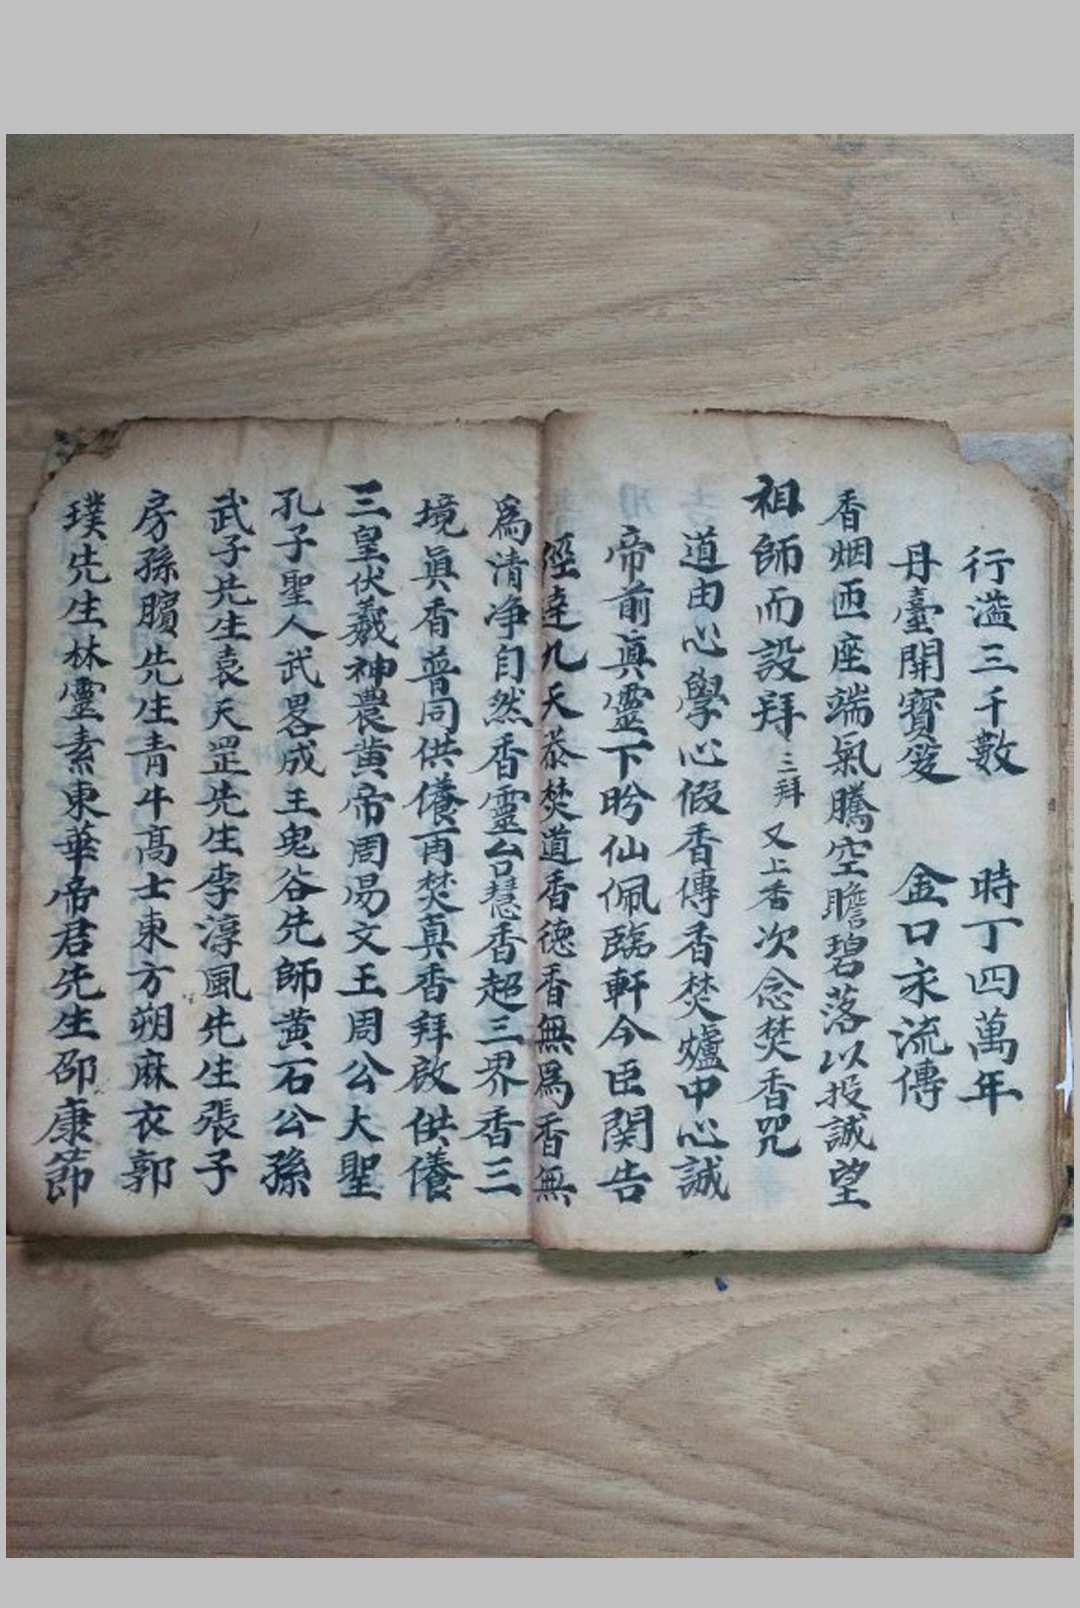 行滿三千數　時丁四萬年
丹臺開寶笈　金口永流傳
香烟匝座端氣騰空瞻碧落以投誠望
祖師而設拜 三拜 又上香次念焚香咒
道由心學心假香傳香焚爐中心誠
帝前眞靈下盻仙佩臨軒今臣関告
逕達九天恭焚道香德香無爲香無
爲清净自然香靈台慧香超三界香三
境眞香普同供養再焚真香拜啟供養
三皇伏羲神農黄帝周昜文王周公大聖
孔子聖人武畧成王鬼谷先師黄石公孫
武子先生袁天罡先生李淳風先生張子
房孫臏先生青牛高士東方朔麻衣郭
璞先生林靈素東華帝君先生邵康節